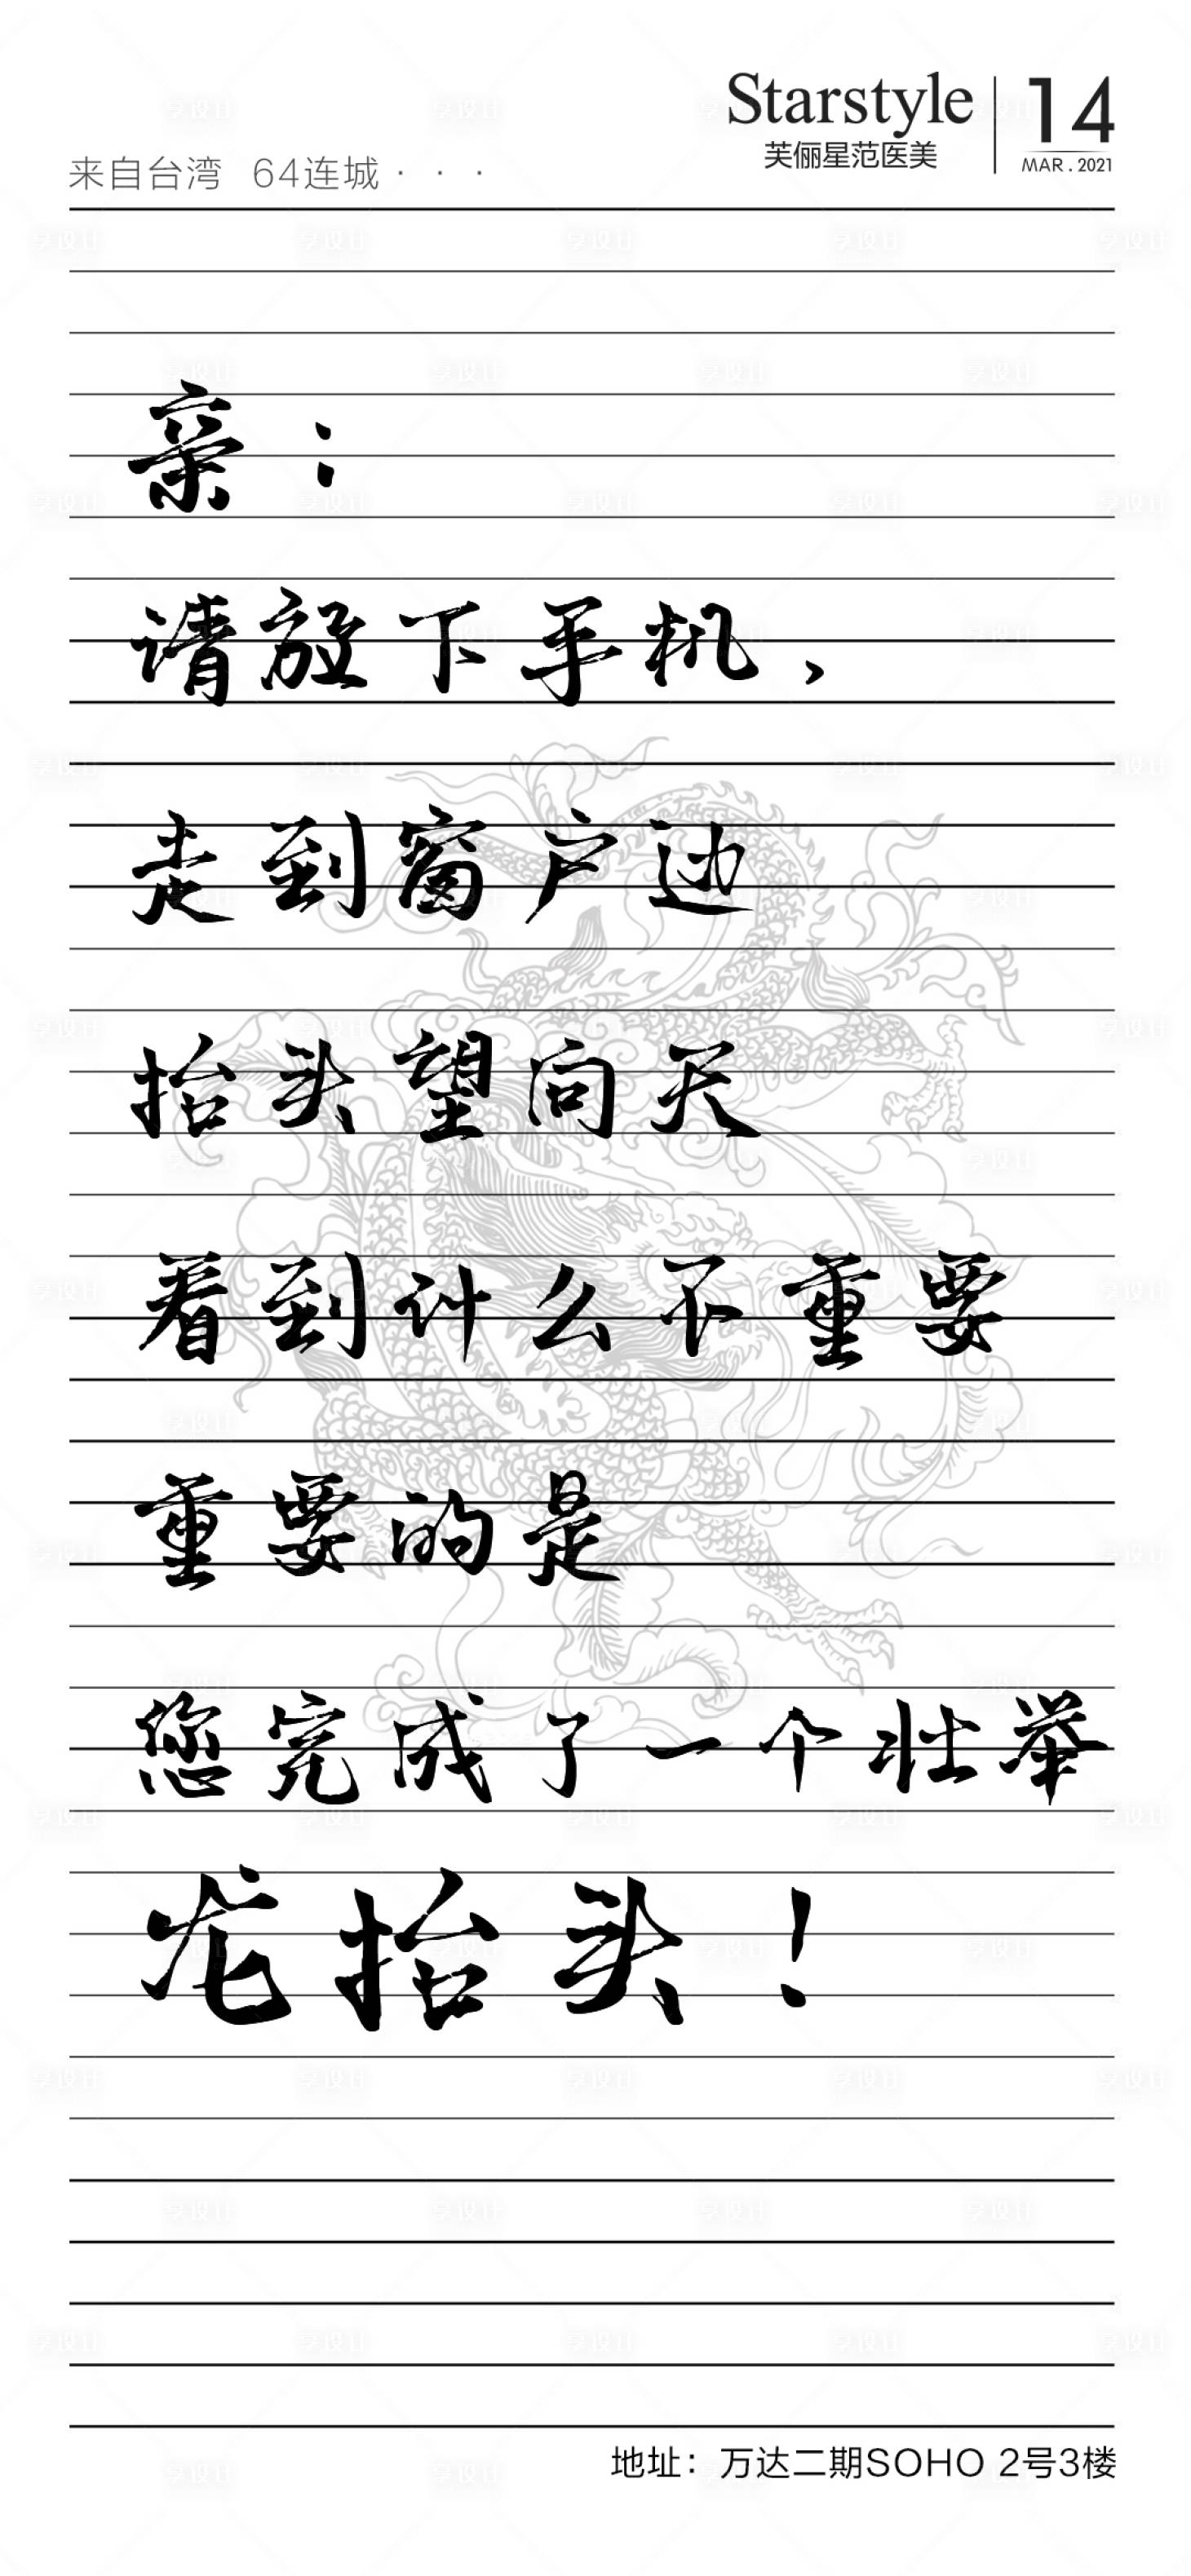 Starstyle
芙俪星范医美
14
MAR . 2021
来自台湾 64连城 · · ·
亲：
请放下手机，
走到窗户边
抬头望向天
看到什么不重要
重要的是
您完成了一个壮举
龙抬头！
地址：万达二期SOHO 2号3楼